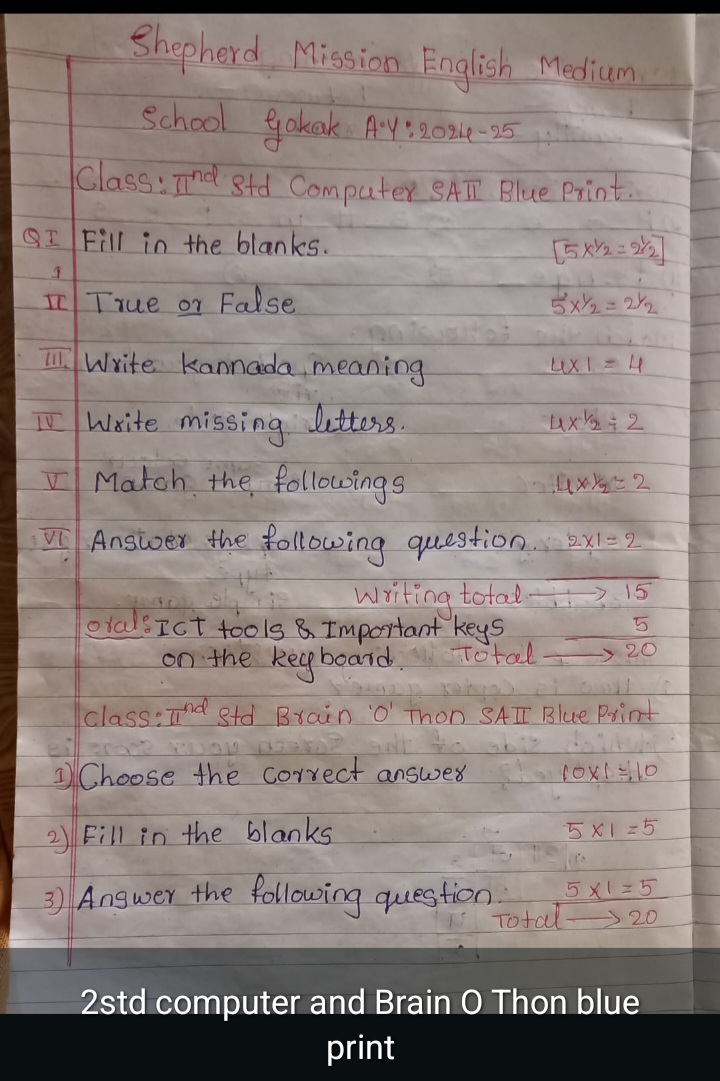 Shepherd Mission English Medium
School Gokak A.Y: 2024-25
Class: IInd Std Computer SAII Blue Print.
QI Fill in the blanks. [5x1/2 = 2 1/2]
II True or False 5x1/2 = 2 1/2
III Write kannada meaning 4x1 = 4
IV Write missing letters. 4x1/2 = 2
V Match the followings 4x1/2 = 2
VI Answer the following question. 2x1 = 2
Writing total → 15
oral: ICT tools & Important keys 5
on the keyboard. Total → 20
Class: IInd Std Brain 'O' Thon SAII Blue Print
1) Choose the correct answer 10x1 = 10
2) Fill in the blanks 5x1 = 5
3) Answer the following question. 5x1 = 5
Total → 20
2std computer and Brain O Thon blue
print